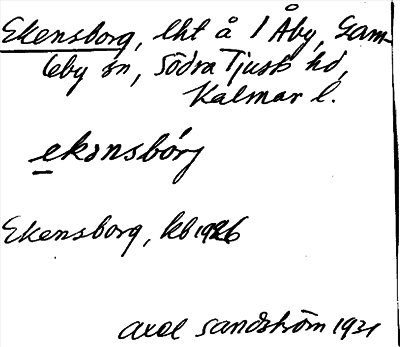 Ekensborg, lht å 1 Åby, Gam-
leby sn, Södra Tjust hd,
Kalmar l.
ekənsbórj
Ekensborg, kb 1926
Axel Sandström 1931